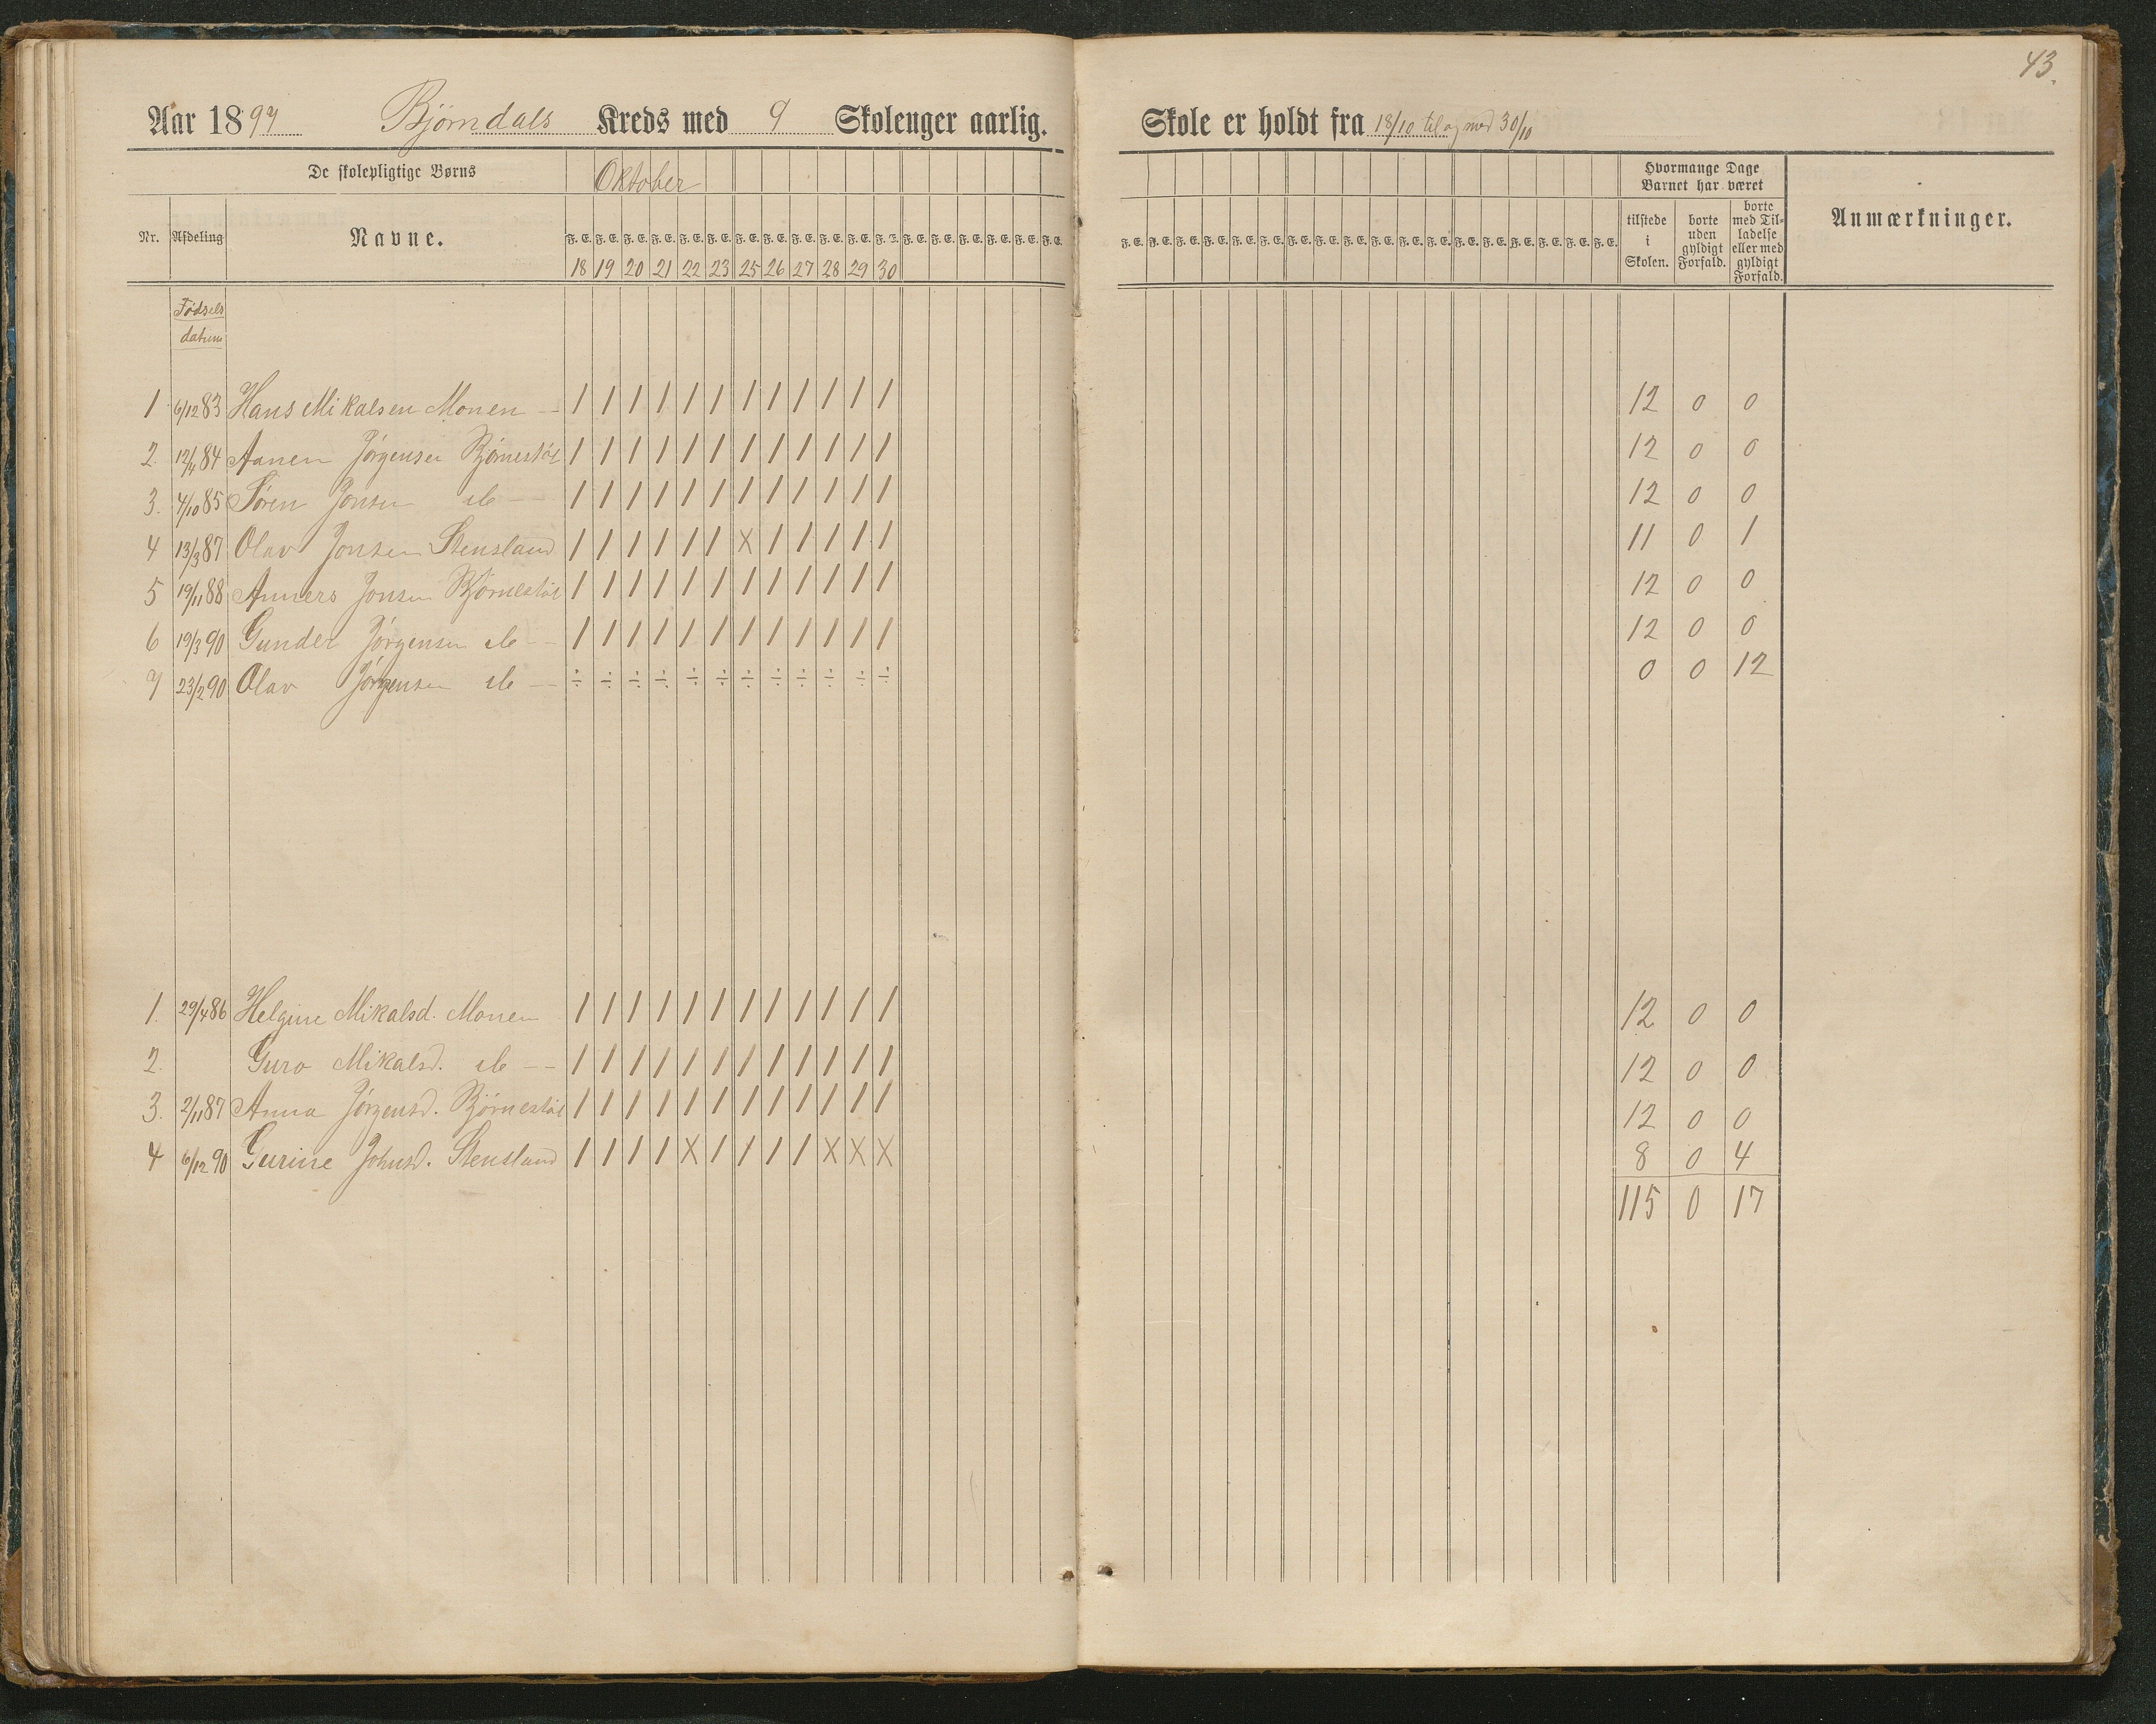 43.
Aar 1897 Bjørndals Kreds med 9 Skolenger aarlig.
Skole er holdt fra 18/10 til og med 30/10
De skolepligtige Børns
Oktober
Nr. Afdeling Navne.
F. E. F. E. F. E. F. E. F. E. F. E. F. E. F. E. F. E. F. E. F. E. F. E. F. E. F. E. F. E. F. E. F. E. F. E.
18 19 20 21 22 23 25 26 27 28 29 30
F. E. F. E. F. E. F. E. F. E. F. E. F. E. F. E. F. E. F. E. F. E. F. E. F. E. F. E. F. E. F. E. F. E. F. E.
Hvormange Dage
Barnet har været
tilstede
i
Skolen.
borte
uden
gyldigt
Forfald.
borte
med Til-
ladelse
eller med
gyldigt
Forfald.
Anmærkninger.
Fødsels
datum
1 6/12 83 Hans Mikalsen Monen — / / / / / / / / / / / / 12 0 0
2. 12/4 84 Aanen Jørgensen Bjørnestøl / / / / / / / / / / / / 12 0 0
3. 4/10 85 Søren Jonsen do — / / / / / / / / / / / / 12 0 0
4 13/3 87 Olav Jonsen Stensland / / / / / / X / / / / / 11 0 1
5 19/11 88 Anners Jonsen Bjørnestøl / / / / / / / / / / / / 12 0 0
6 19/3 90 Gunder Jørgensen do — / / / / / / / / / / / / 12 0 0
7 23/2 90 Olav Jørgensen do — ÷ ÷ ÷ ÷ ÷ ÷ ÷ ÷ ÷ ÷ ÷ ÷ 0 0 12
1. 29/4 86 Helgine Mikalsd. Monen / / / / / / / / / / / / 12 0 0
2. Guro Mikalsd. do — / / / / / / / / / / / / 12 0 0
3. 2/11 87 Anna Jørgensd. Bjørnestøl / / / / / / / / / / / / 12 0 0
4 6/12 90 Gurine Johnsd. Stensland / / / / X / / / / X X X 8 0 4
115 0 17